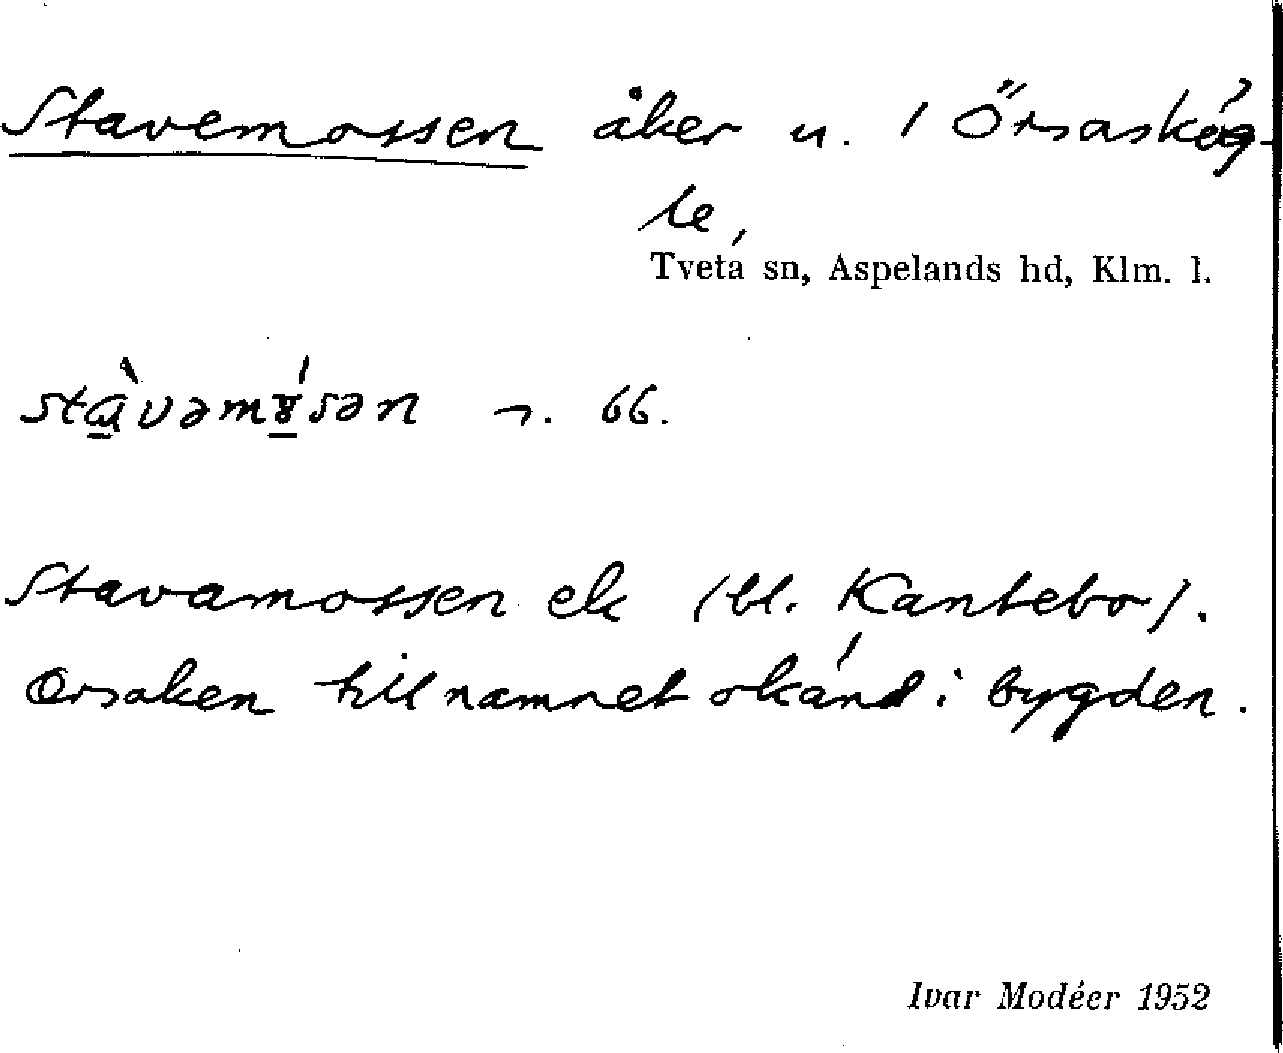 Stavemossen åker u. 1 Örsaskög-
le,
Tveta sn, Aspelands hd, Klm. l.
66.
Stavamossen ek (bl. Kantebo).
Orsaken till namnet okänd i bygden.
Ivar Modéer 1952